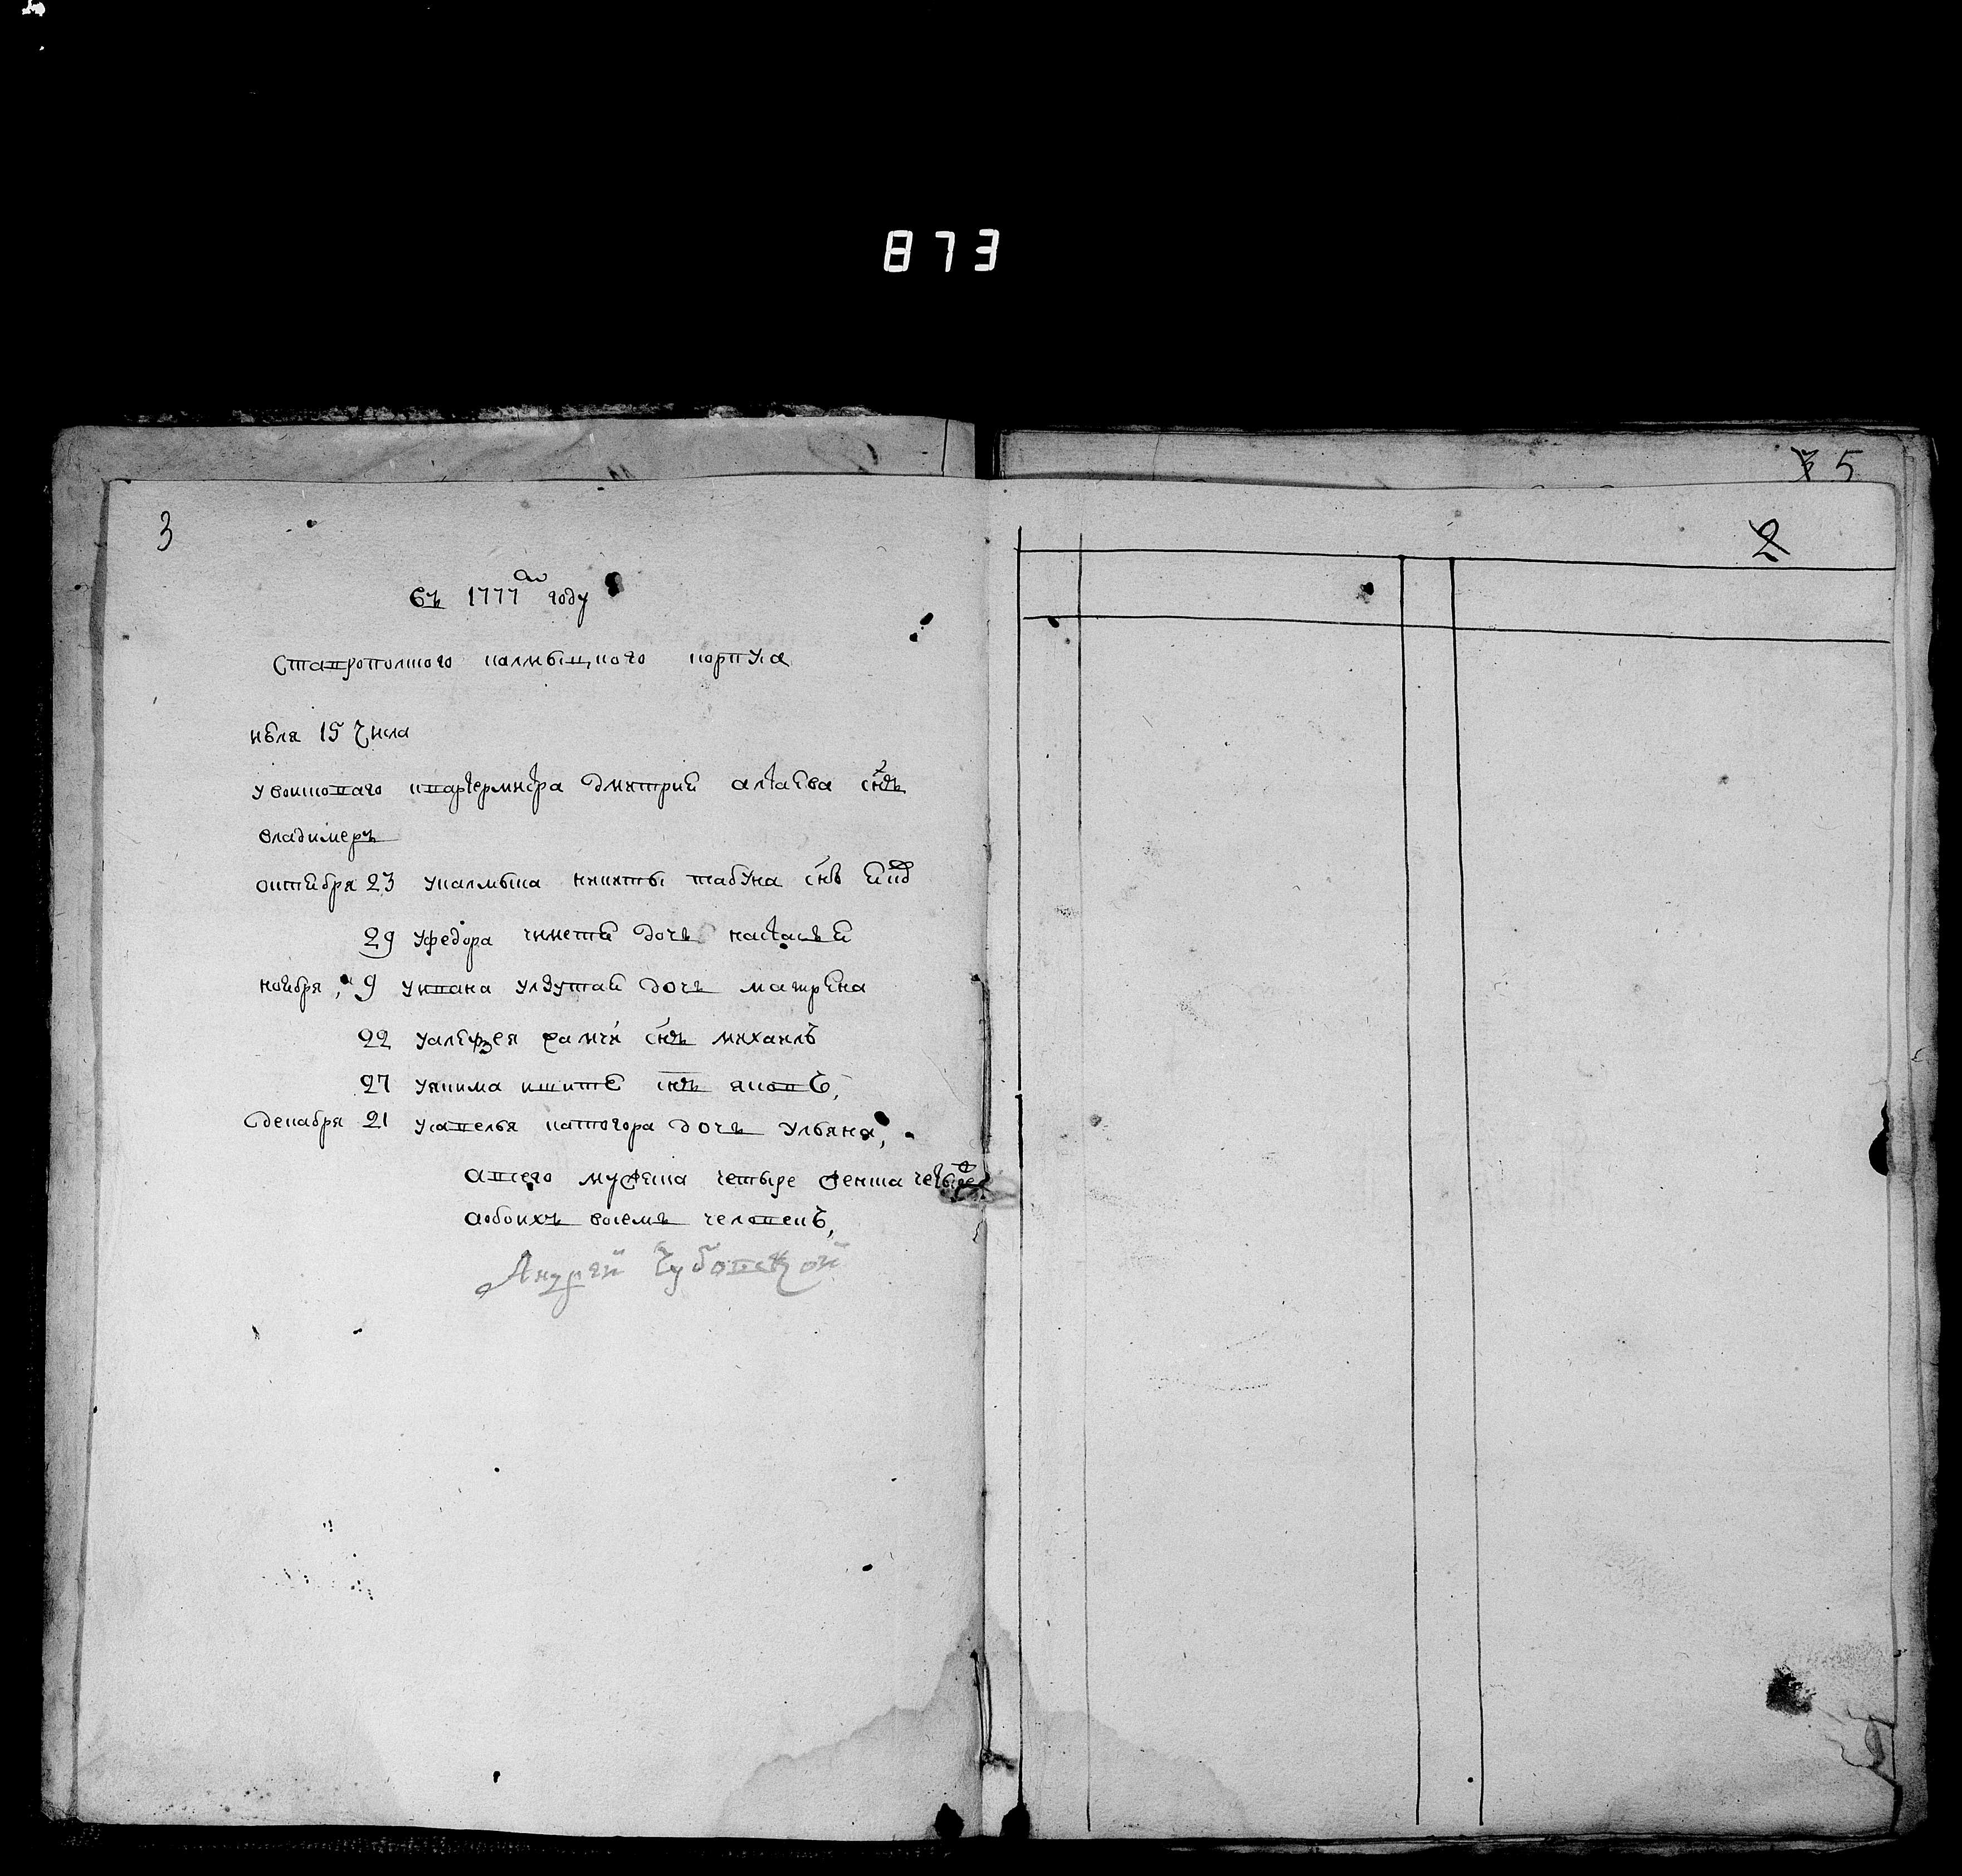 873
3
въ 1777м году
Ставрополского калмыцкого корпуса
июля 15 числа
увоисковаго квартермистра дмитрия алтаева снъ
владимеръ
октября 23 укалмыка никиты табуна снъ
29 уфедора чиметя дочь настасья
ноября 9 уивана улзутая дочь матрена
22 уалеѯея хамчи снъ михаилъ
27 уякима икитя снъ яковъ
декабря 21 усавелья каткогора дочь ульяна,
авсего мужеска четыре женска четыре
аобоихъ восемь человекъ,
Андрей Чубовской
5
2